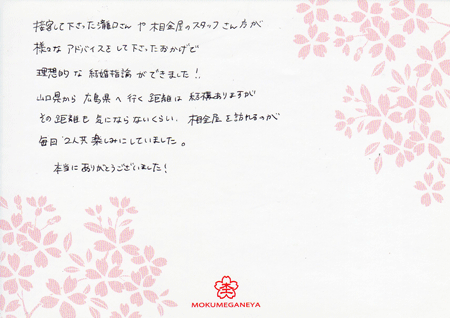 接客して下さった瀧口さん や 杢目金屋のスタッフさん方が
様々な アドバイスを して下さったおかげで
理想的な 結婚指輪 ができました!!
山口県から 広島県へ行く 距離は 結構ありますが
その 距離も 気にならないくらい、杢目金屋を訪れるのが
毎回 2人共 楽しみにしていました。
本当に ありがとうございました!
MOKUMEGANEYA